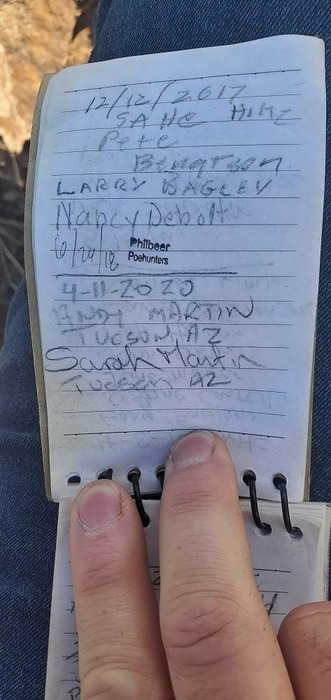 12/12/2017
SAHC HIKE
Pete
Bengtson
LARRY BAGLEY
Nancy Debolt
6/24/18 Philbeer
Poehunters
4-11-2020
ANDY MARTIN
TUCSON AZ
Sarah Martin
Tucson AZ